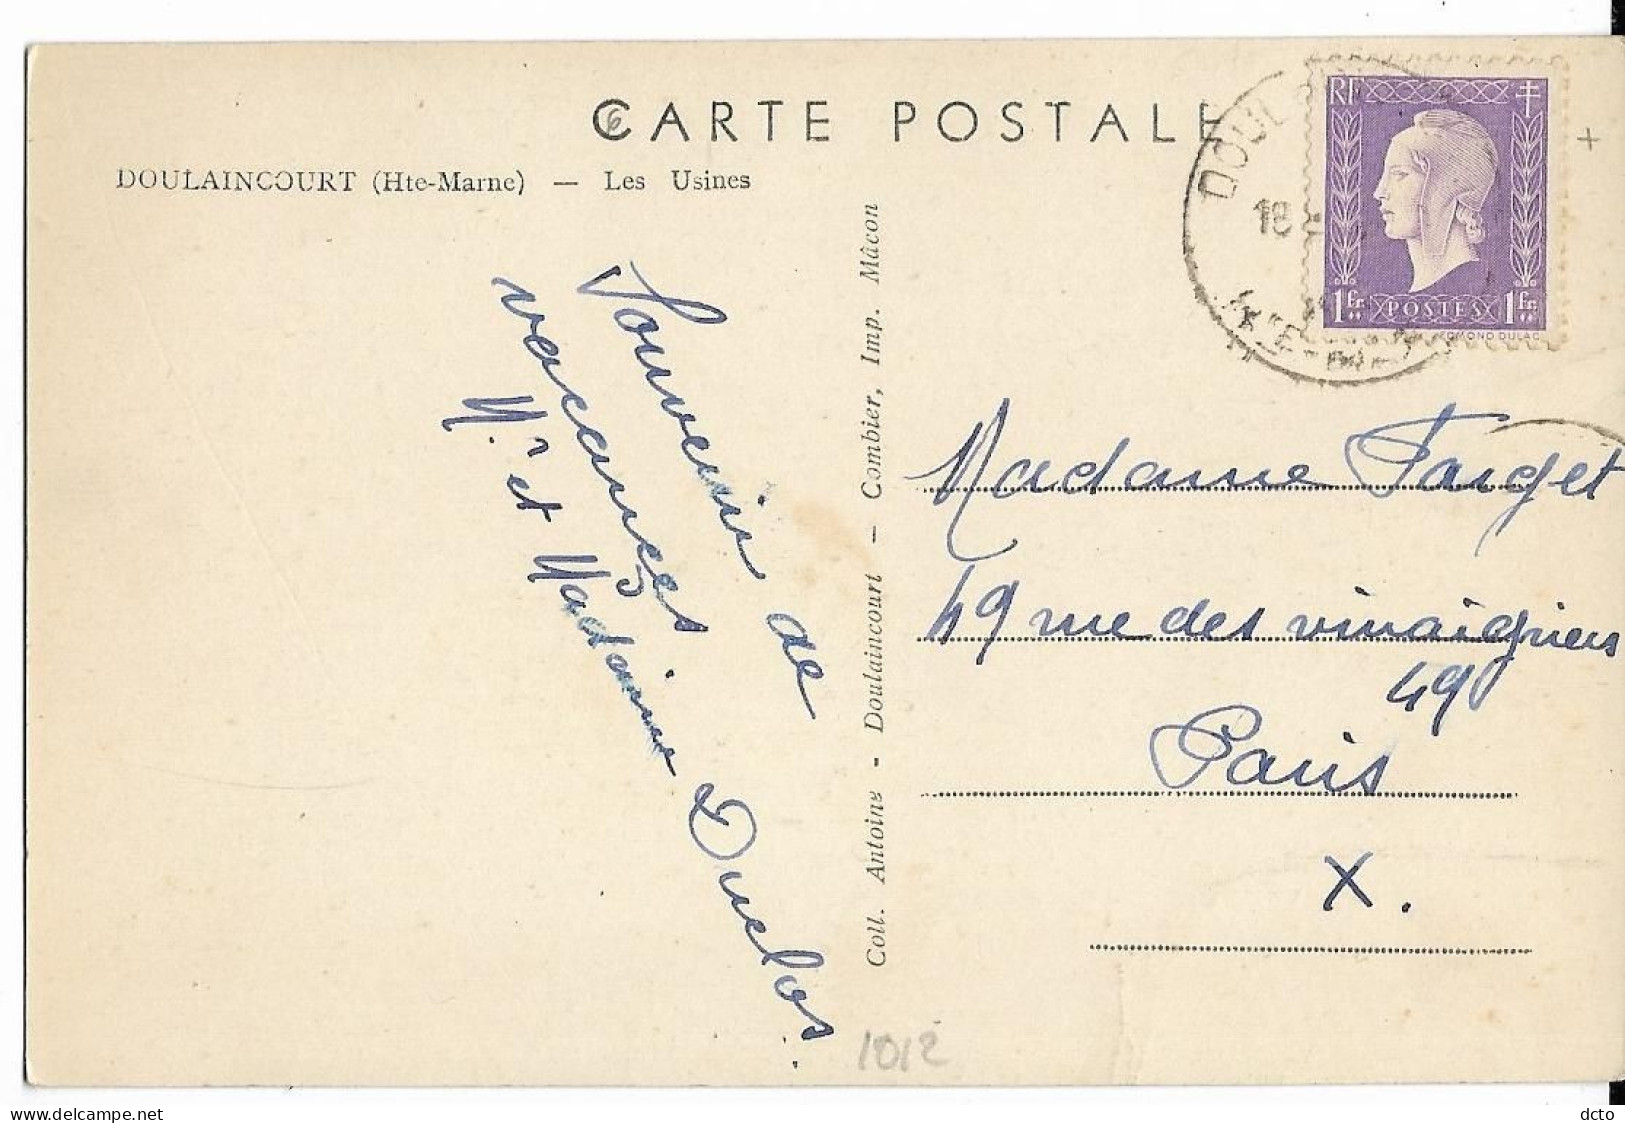 CARTE POSTALE
6
DOULAINCOURT (Hte-Marne) — Les Usines
Souvenir de
vacances
M. et Madame Duclos.
Coll. Antoine - Doulaincourt — Combier, Imp. Mâcon
RF
1fr. POSTES 1fr.
EDMOND DULAC
18
+
Madame Farget
49 rue des vinaigriers
49
Paris
X.
1012
dcto
www.delcampe.net